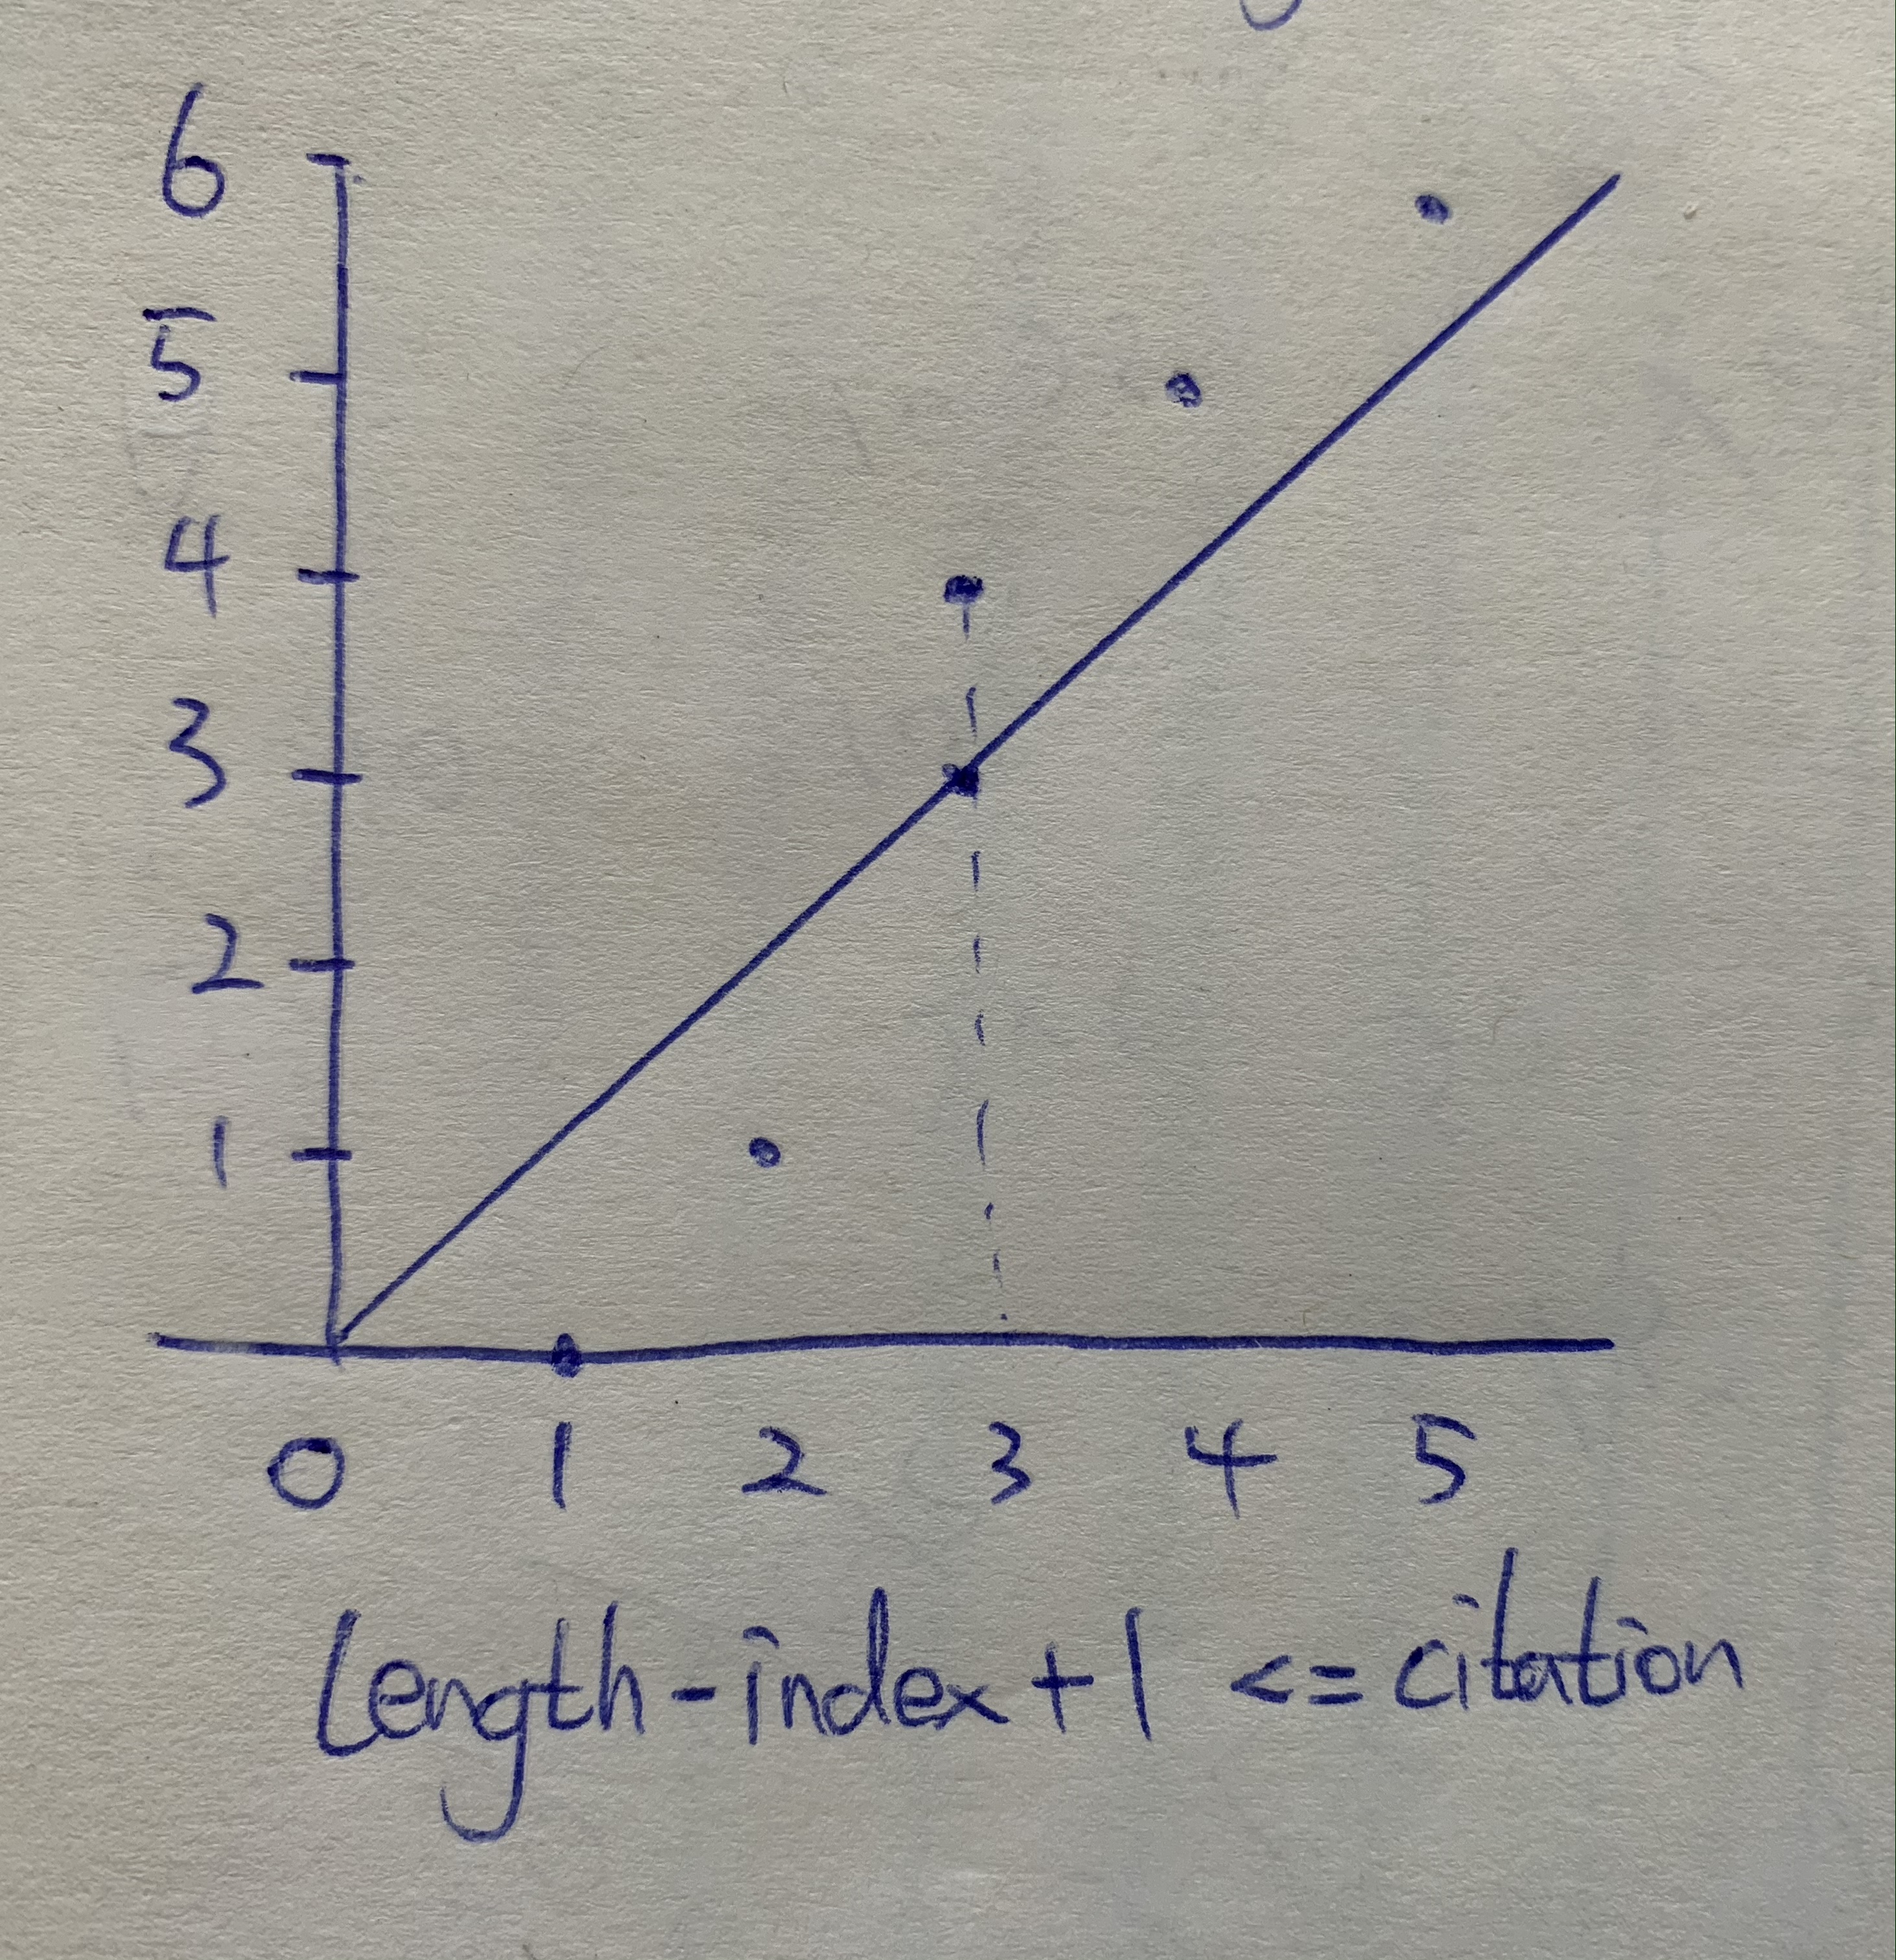 6
5
4
3
2
1
0 1 2 3 4 5
Length-index+1 <= citation